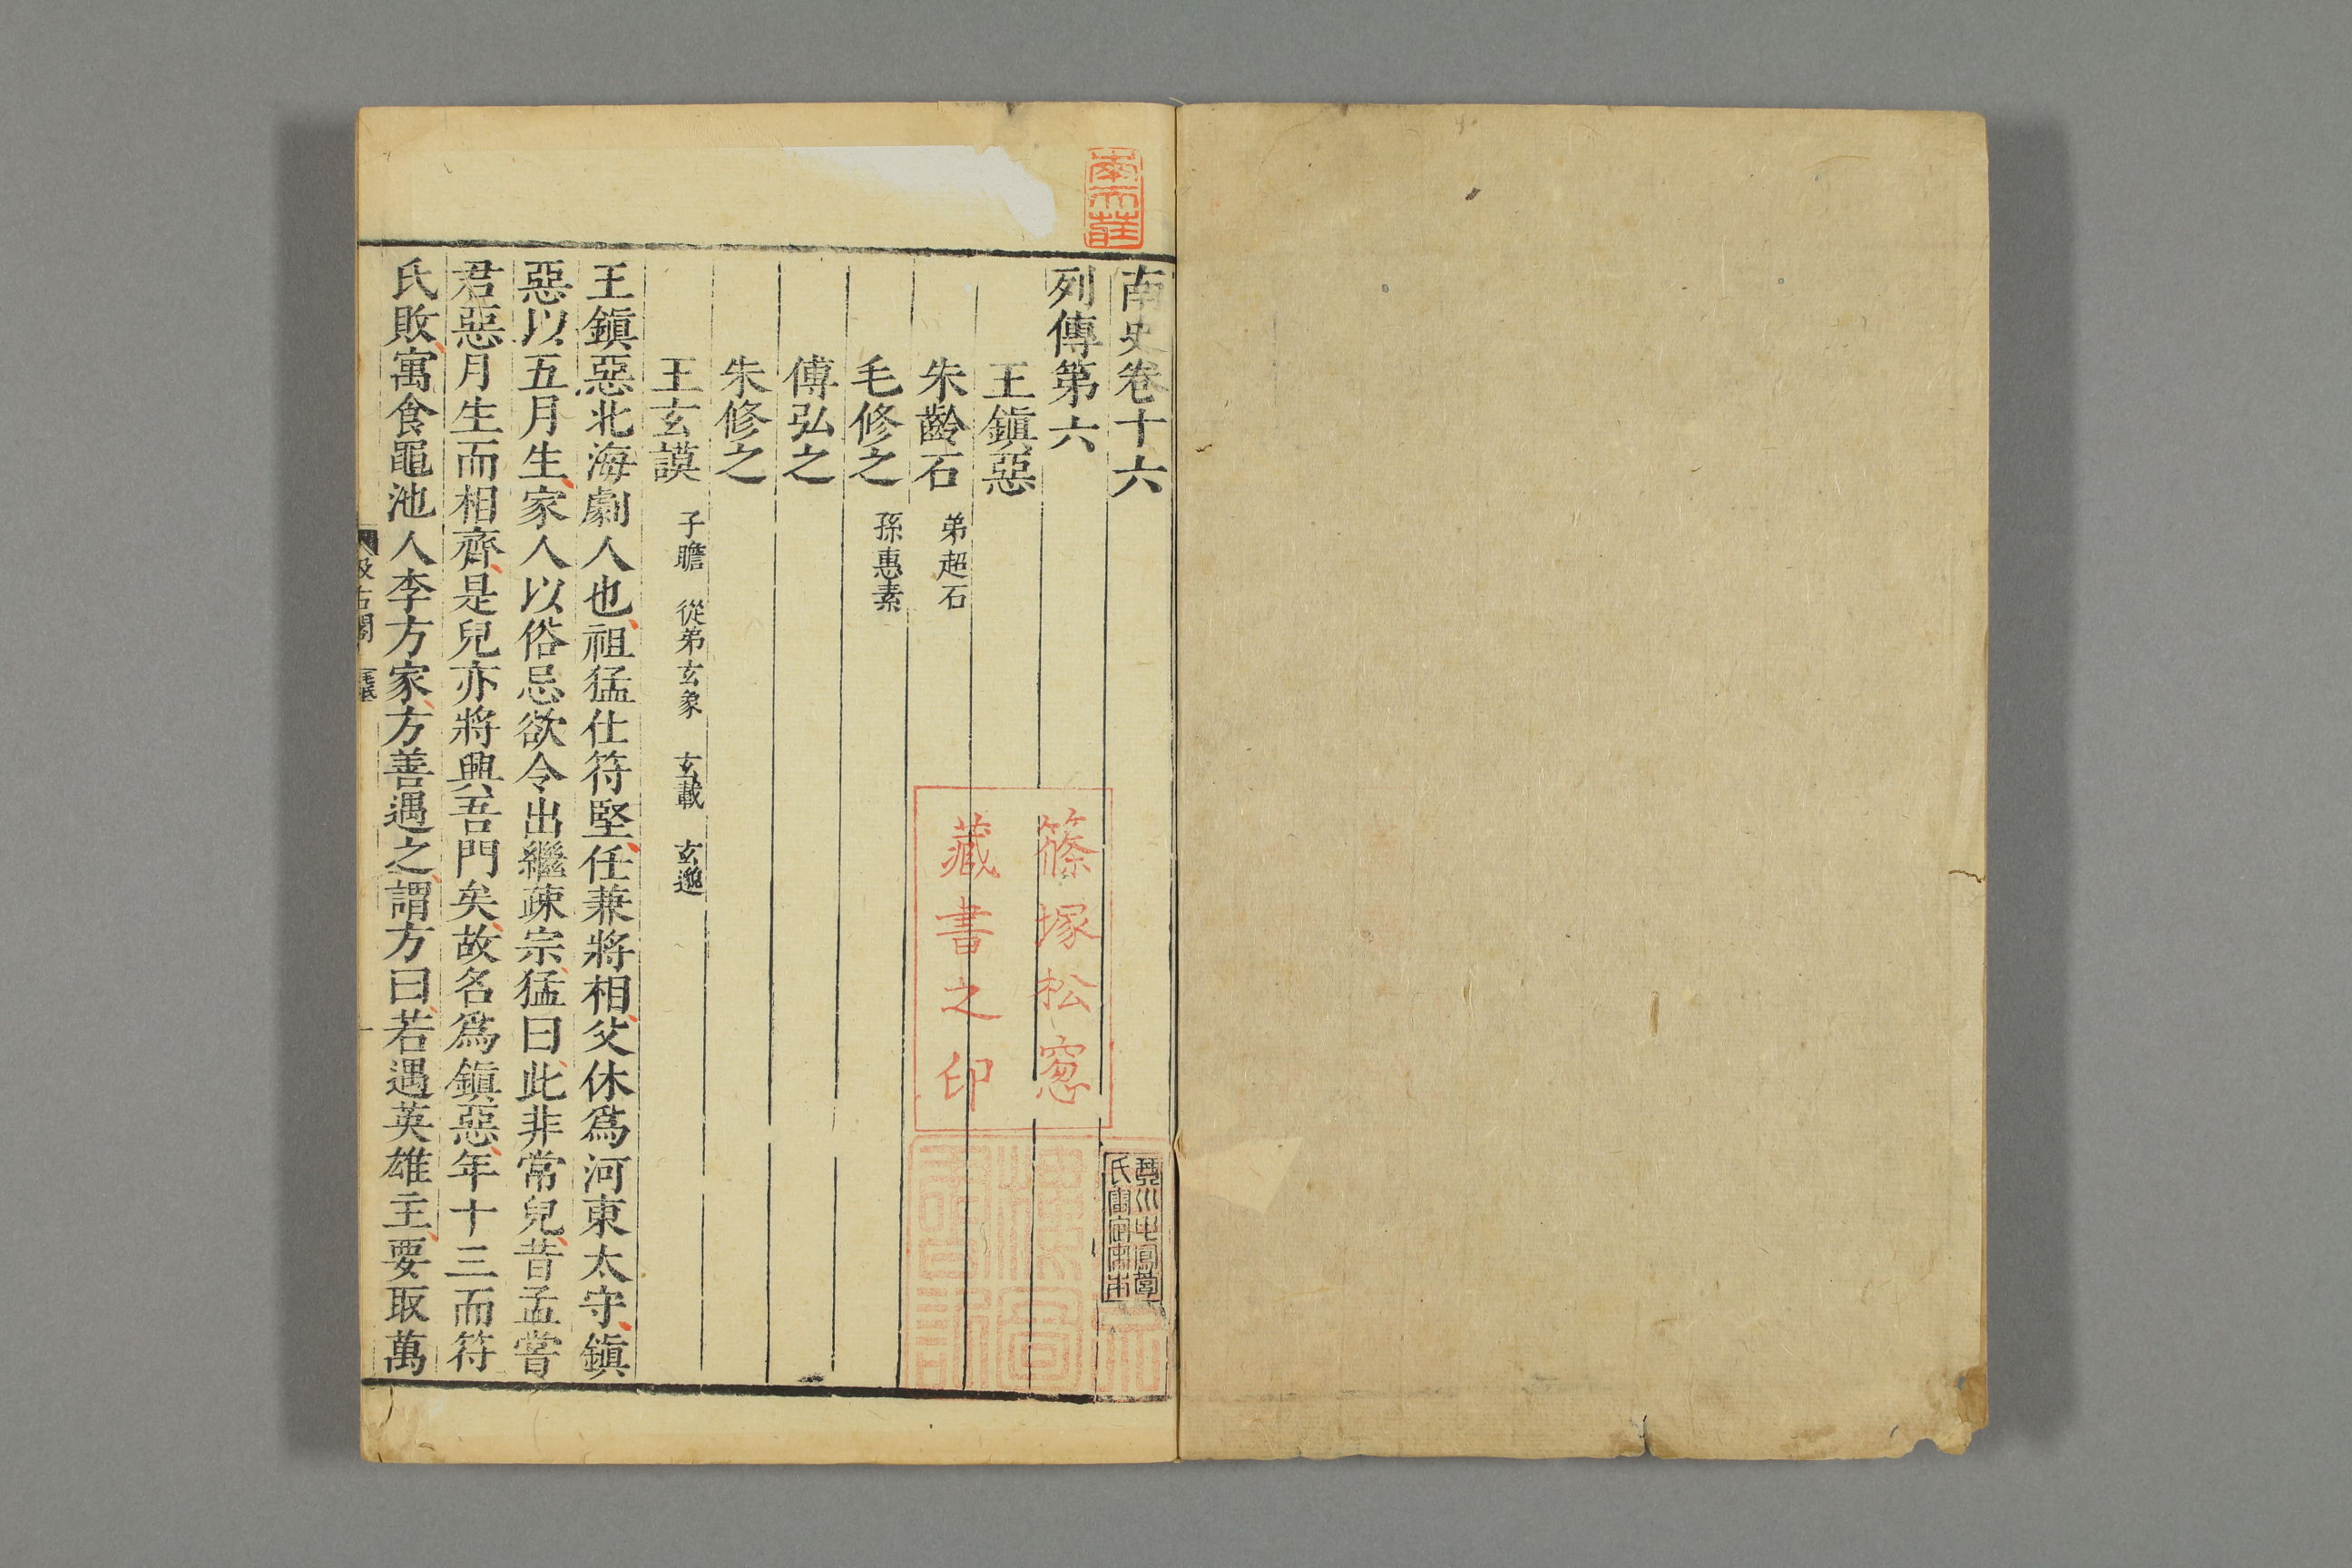 南史卷十六
列傳第六
王鎮惡
朱齡石 弟超石
毛修之 孫惠素
傅弘之
朱修之
王玄謨 子瞻 從弟玄象 玄載 玄邈
王鎮惡北海劇人也祖猛仕符堅任兼將相父休爲河東太守鎮
惡以五月生家人以俗忌欲令出繼疎宗猛曰此非常兒昔孟嘗
君惡月生而相齊是兒亦將興吾門矣故名爲鎮惡年十三而符
氏敗寓食黽池人李方家方善遇之謂方曰若遇英雄主要取萬
汲古閣
毛氏
篠塚松窓
藏書之印